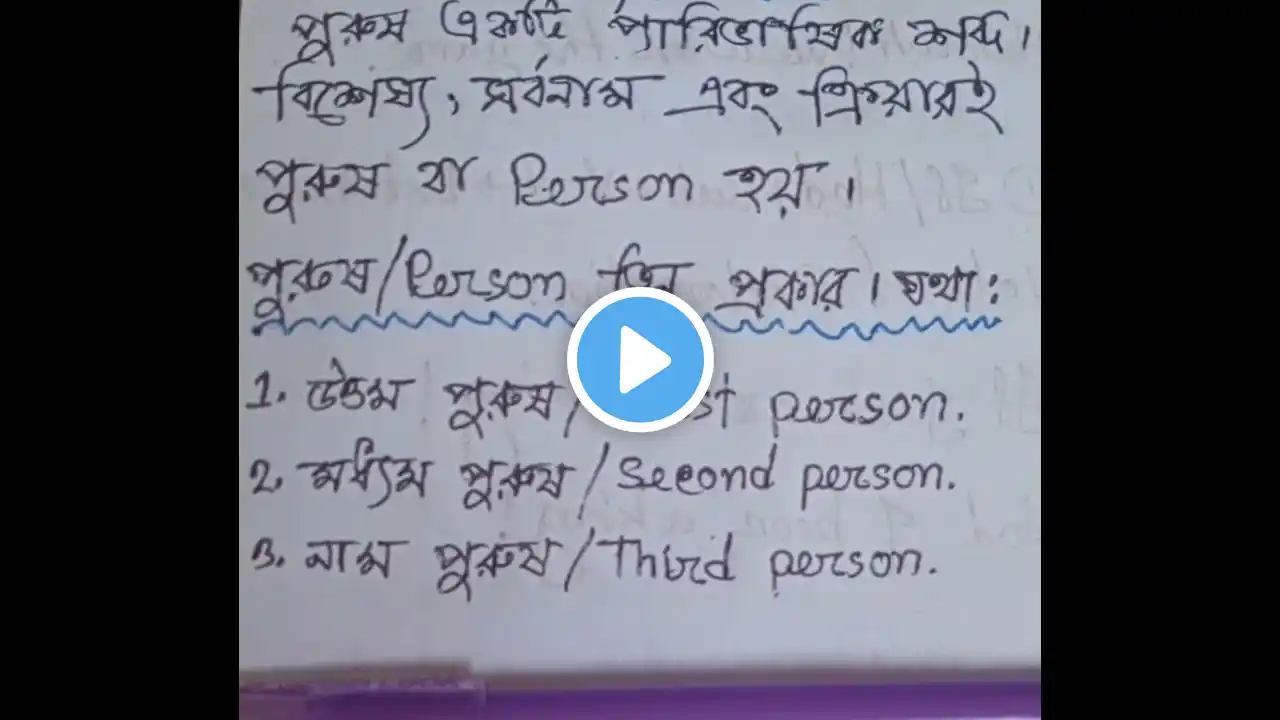 পুরুষ একটি পারিভাষিক শব্দ।
বিশেষ্য, সর্বনাম এবং ক্রিয়ারই
পুরুষ বা Person হয়।
পুরুষ/Person তিন প্রকার। যথা:
1. উত্তম পুরুষ/ person.
2. মধ্যম পুরুষ/Second person.
3. নাম পুরুষ/Third person.